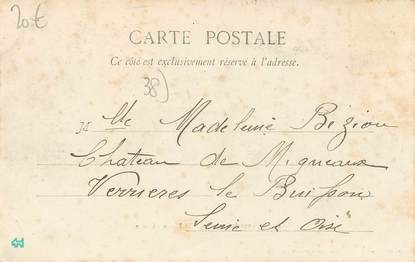 20€
CARTE POSTALE
Ce côté est exclusivement réservé à l'adresse.
38)
M lle Madeleine Bézion
Chateau de Migneaux
Verrieres le Buisson
Seine et Oise